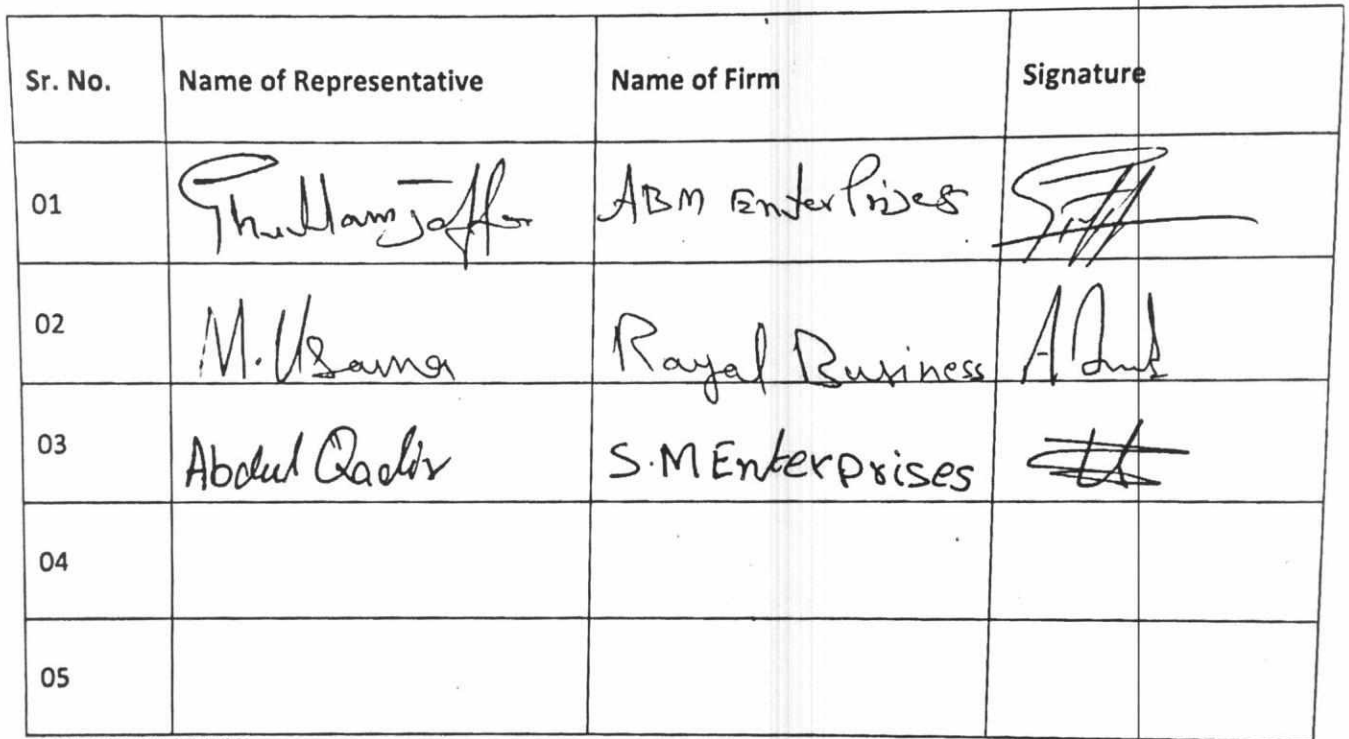 Sr. No. Name of Representative Name of Firm Signature
01 Ghullam Jaffar ABM EnterPrises
02 M. Usama Rayal Business
03 Abdul Qadir S.M Enterprises
04
05